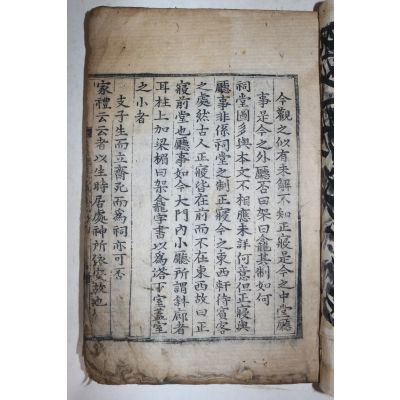 今觀之似有未解不知正寢是今之中堂廳
事是今之外廳否曰架曰龕其制如何
祠堂圖多與本文不相應未詳何意但正寢與
廳事非係祠堂之制正寢今之東西軒待賓客
之處然古人正寢皆在前而不在東西故曰正
寢前堂也廳事如今大門內小廳所謂斜廊者
耳柱上加梁楣曰架龕字書以爲塔下室蓋室
之小者
支子生而立齋死而爲祠亦可否
家禮云云者以生時居處神所依安故也